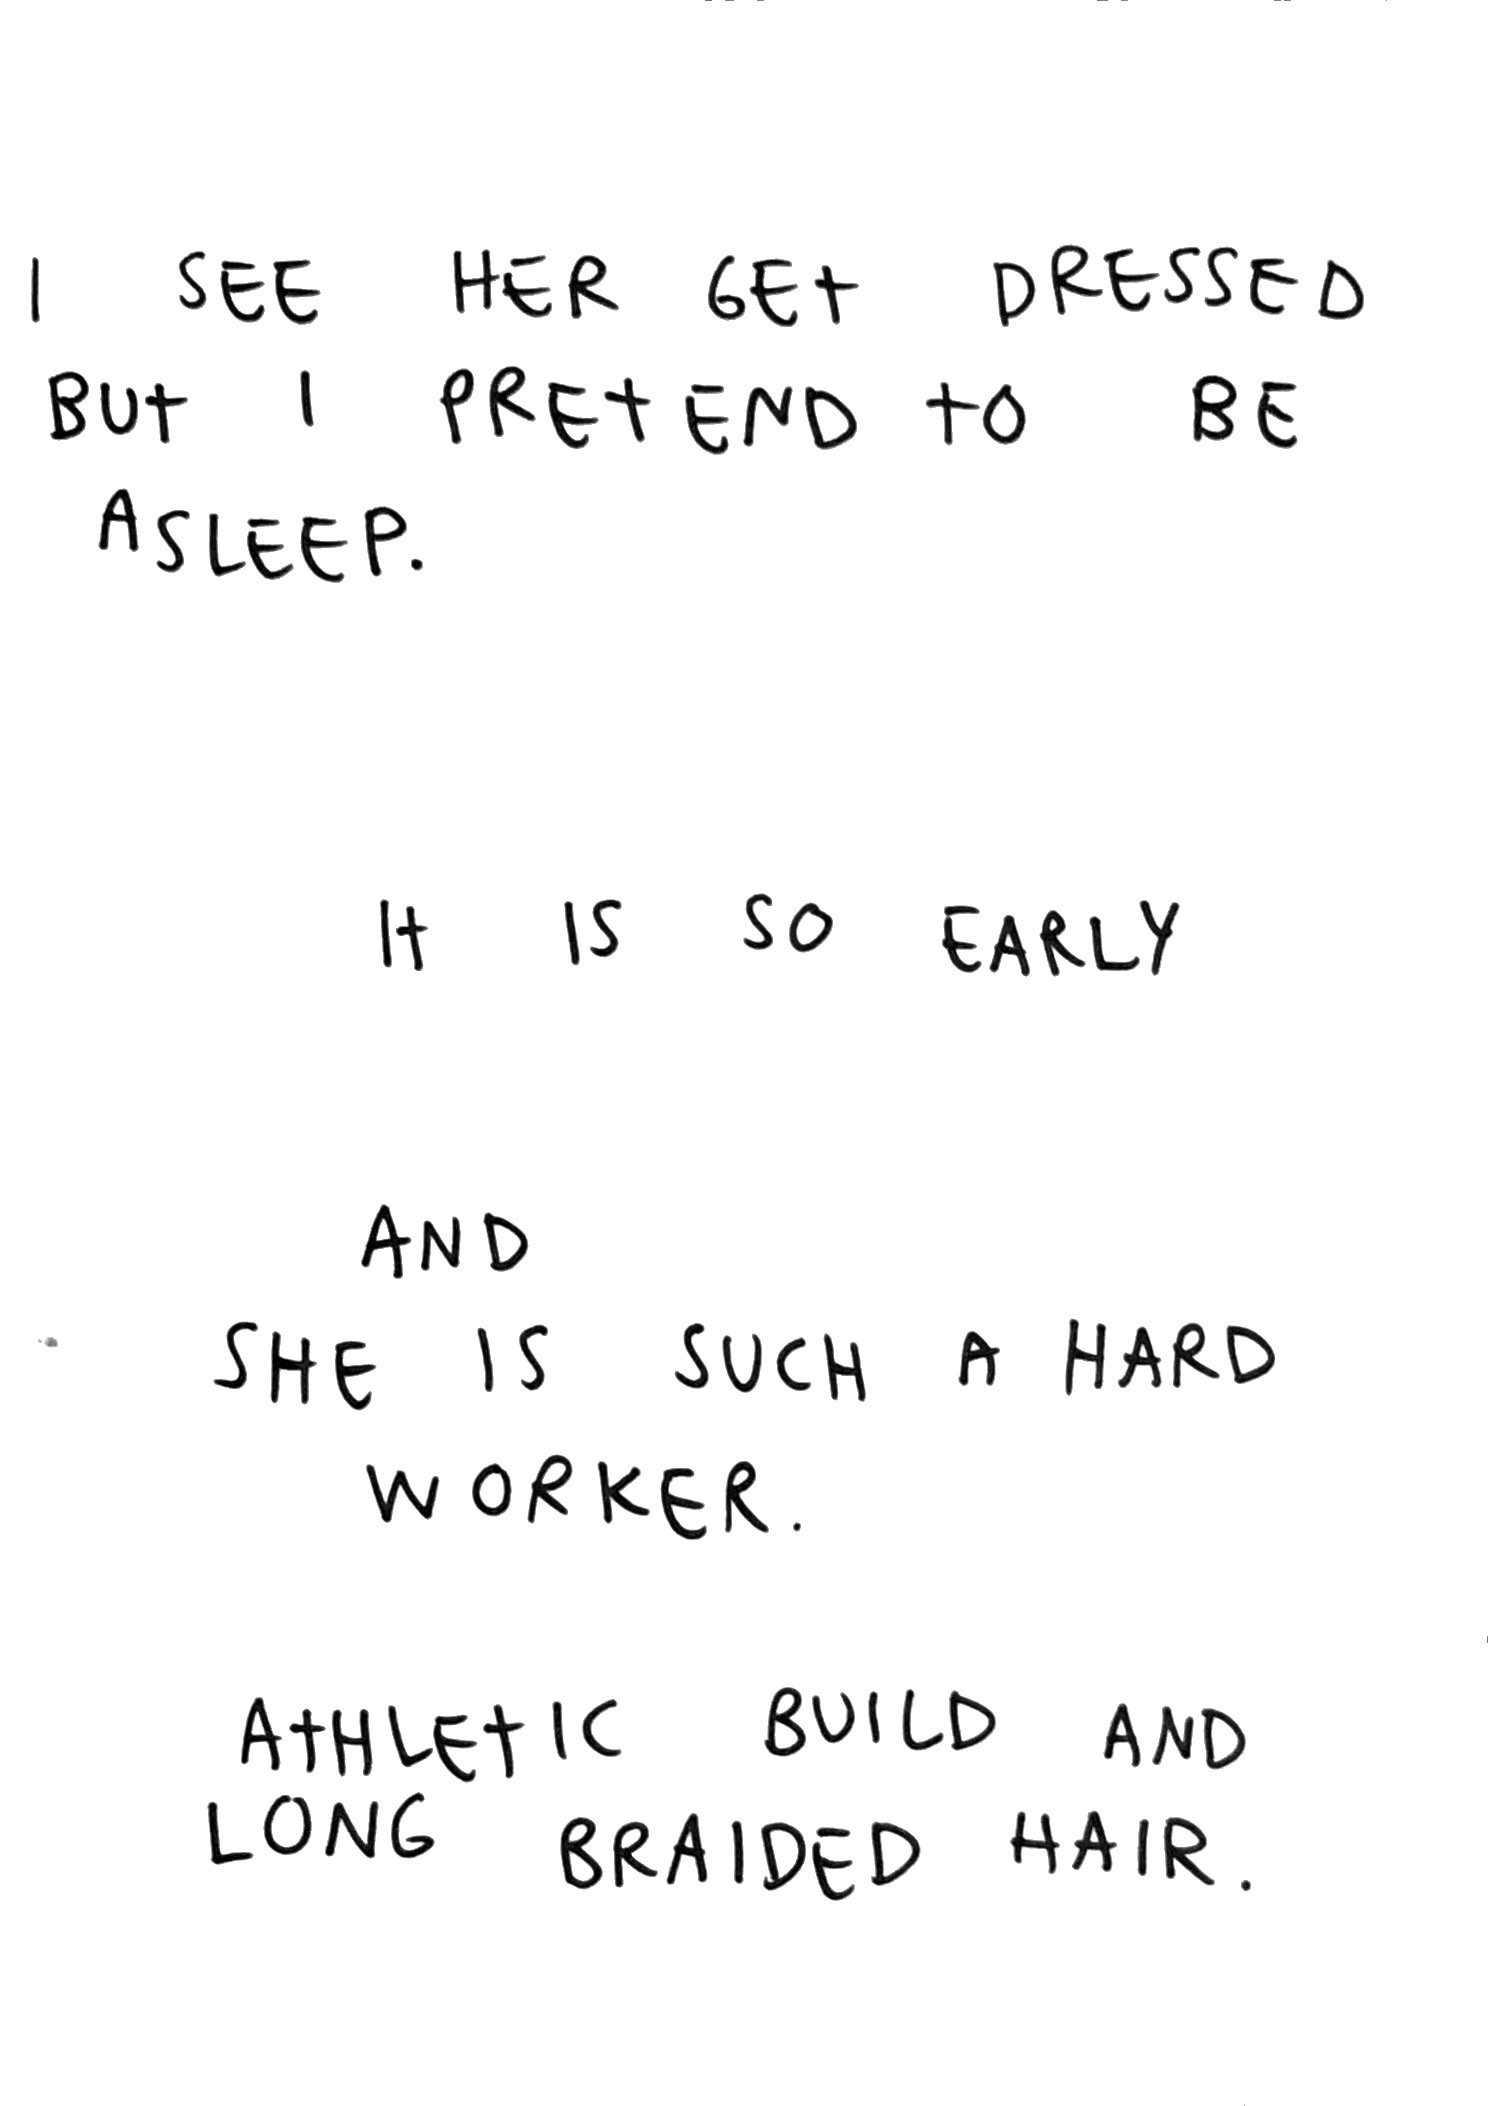 I SEE HER GET DRESSED
BUT I PRETEND TO BE
ASLEEP.
IT IS SO EARLY
AND
SHE IS SUCH A HARD
WORKER.
ATHLETIC BUILD AND
LONG BRAIDED HAIR.